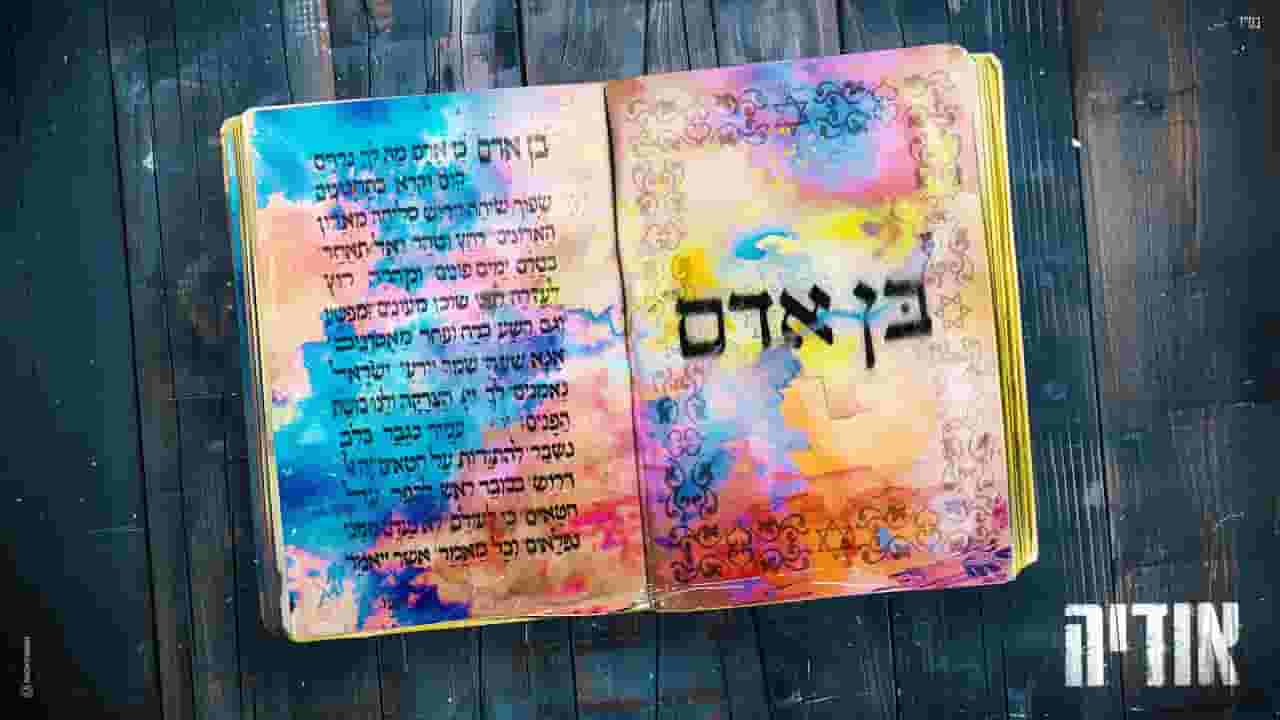 בס״ד
בן אדם
בן אדם בן אדם מה לך נרדם
קום וקרא בתחנונים
שפוך שיחה דרוש סליחה מאדון
האדונים רחץ וטהר ואל תאחר
בטרם ימים פונים ומהרה רוץ
לעזרה לפני שוכן מעונים ומפשע
וגם רשע ברח ופחד מאסונים
אנא שעה שמך יודעי ישראל
נאמנים לך יי׳ הצדקה ולנו בושת
הפנים עמוד כגבר
להתודות על חטאים
דרוש בכובד ראש לכפר על
חטאים כי לעולם לא
נפלאים וכל מאמר אשר יאמר
אודיה